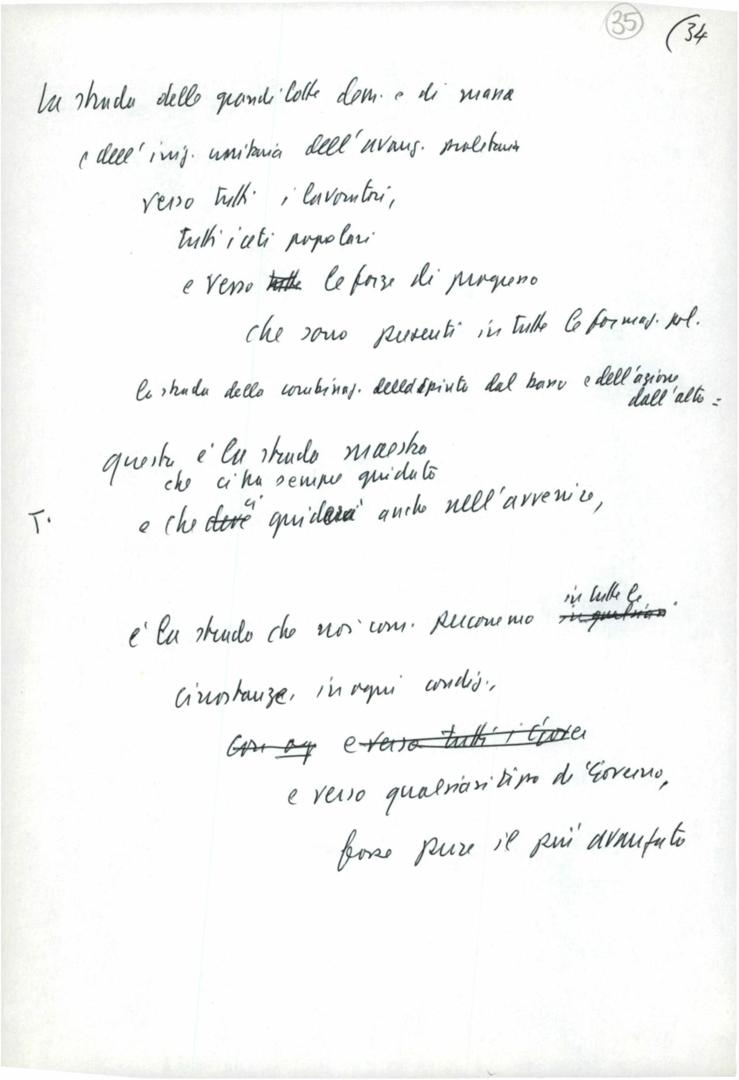 35 (34
la strada delle grandi lotte dem. e di massa
e dell'iniz. unitaria dell'avang. proletaria
verso tutti i lavoratori,
tutti i ceti popolari
e verso tutte le forze di progresso
che sono presenti in tutte le formaz. pol.
la strada della combinaz. della spinta dal basso e dell'azione
dall'alto =
questa è la strada maestra
che ci ha sempre guidato
T. e che deve ci guiderà anche nell'avvenire,
in tutte le
è la strada che noi com. percorremo in qualsiasi
circostanze, in ogni condiz.,
Con og e verso tutti i Gover
e verso qualsiasi tipo di Governo,
fosse pure il più avanzato